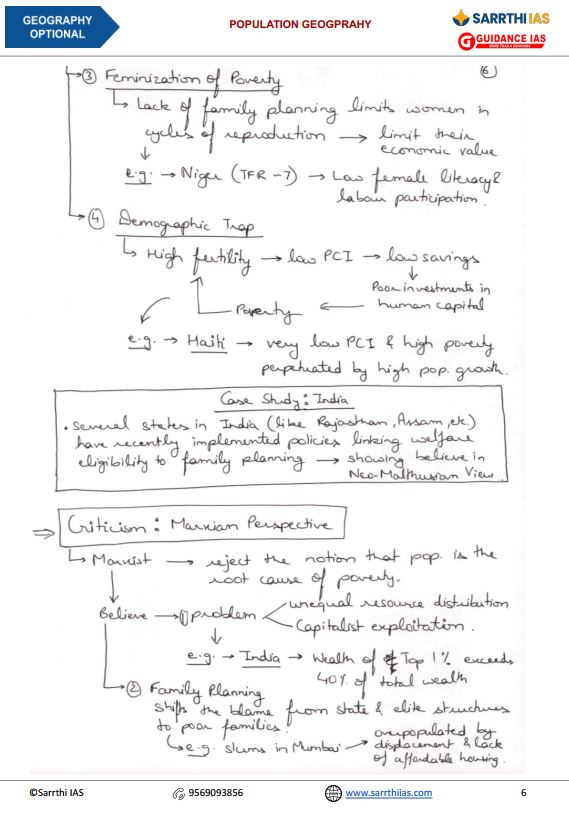 GEOGRAPHY
OPTIONAL
POPULATION GEOGPRAHY
SARRTHI IAS
GUIDANCE IAS
6
③ Feminization of Poverty
↳ Lack of family planning limits women in
cycles of reproduction → limit their
economic value
↓
e.g. → Niger (TFR ~7) → Low female literacy &
labour participation.
④ Demographic Trap
↳ High fertility → low PCI → low savings
↓
Poor investments in
human capital
Poverty ←
e.g. → Haiti → very low PCI & high poverty
perpetuated by high pop. growth.
Case Study: India
• Several states in India (like Rajasthan, Assam, etc.)
have recently implemented policies linking welfare
eligibility to family planning → showing believe in
Neo-Malthusian View.
⇒ Criticism: Marxian Perspective
↳ Marxist → reject the notion that pop. is the
root cause of poverty.
Believe → ① problem
unequal resource distribution
Capitalist exploitation.
↓
e.g. → India → Wealth of Top 1% exceeds
40% of total wealth
② Family Planning
shifts the blame from state & elite structures
to poor families.
↳ e.g. slums in Mumbai → overpopulated by
displacement & lack
of affordable housing.
©Sarrthi IAS
9569093856
www.sarrthiias.com
6